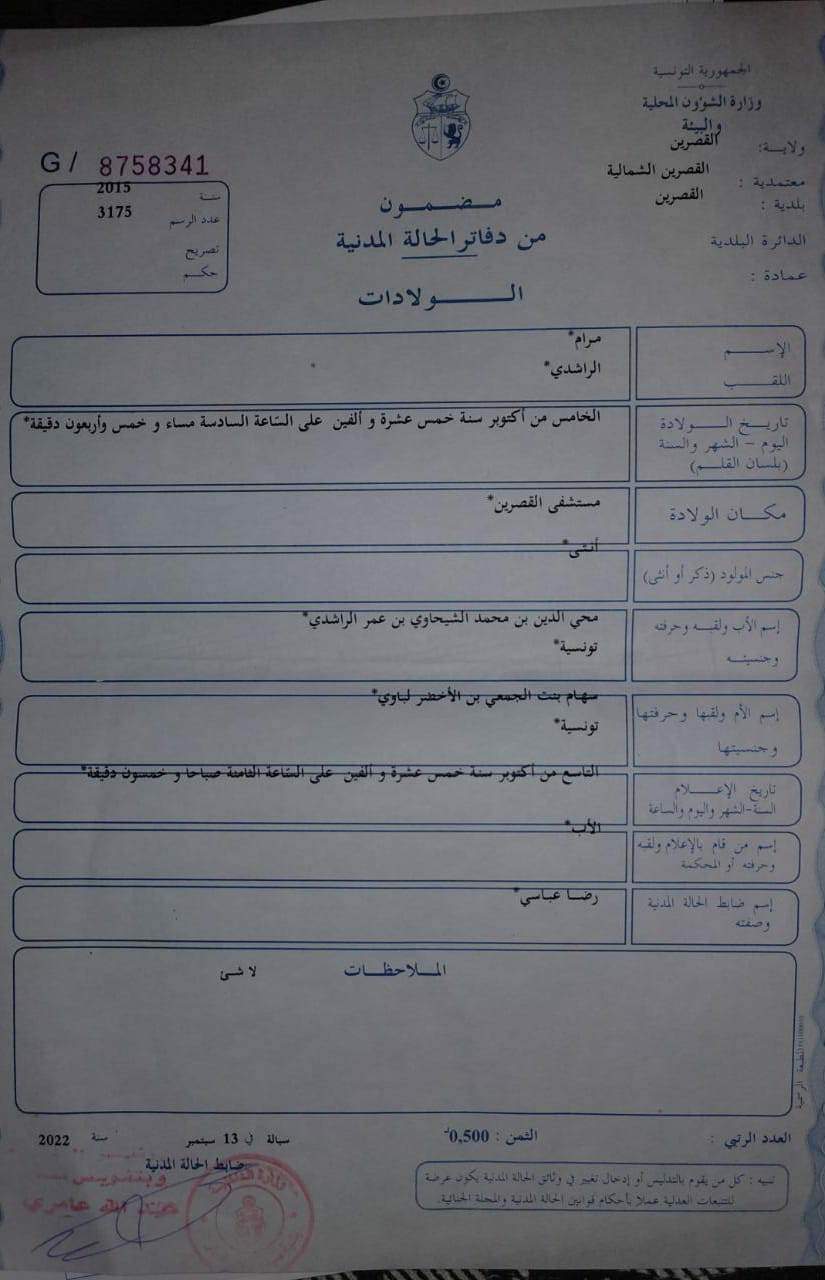 الجمهورية التونسية
وزارة الشؤون المحلية
والبيئة
ولاية: القصرين
معتمدية : القصرين الشمالية
بلدية : القصرين
الدائرة البلدية
عمادة :
G / 8758341
سنة 2015
عدد الرسم 3175
تصريح
حكم
مضمون
من دفاتر الحالة المدنية
الولادات
الإسم
مرام*
اللقب
الراشدي*
تاريخ الولادة
اليوم - الشهر والسنة
(بلسان القلم)
الخامس من أكتوبر سنة خمس عشرة و ألفين على السّاعة السادسة مساء و خمس وأربعون دقيقة*
مكان الولادة
مستشفى القصرين*
جنس المولود (ذكر أو أنثى)
أنثى*
إسم الأب ولقبه وحرفته
وجنسيته
محي الدين بن محمد الشيحاوي بن عمر الراشدي*
تونسية*
إسم الأم ولقبها وحرفتها
وجنسيتها
سهام بنت الجمعي بن الأخضر لباوي*
تونسية*
تاريخ الإعلام
السنة-الشهر واليوم والساعة
التاسع من أكتوبر سنة خمس عشرة و ألفين على السّاعة الثامنة صباحا و خمسون دقيقة*
إسم من قام بالإعلام ولقبه
وحرفته أو المحكمة
الأب*
إسم ضابط الحالة المدنية
وصفته
رضا عباسي*
الملاحظات
لا شئ
المطبعة الرسمية
العدد الرتبي :
الثمن : 0,500د
سبالة في 13 سبتمبر سنة 2022
ضابط الحالة المدنية
عبد الله عامري
تنبيه : كل من يقوم بالتدليس أو إدخال تغيير في وثائق الحالة المدنية يكون عرضة
للتتبعات العدلية عملا بأحكام قوانين الحالة المدنية والمجلة الجنائية.